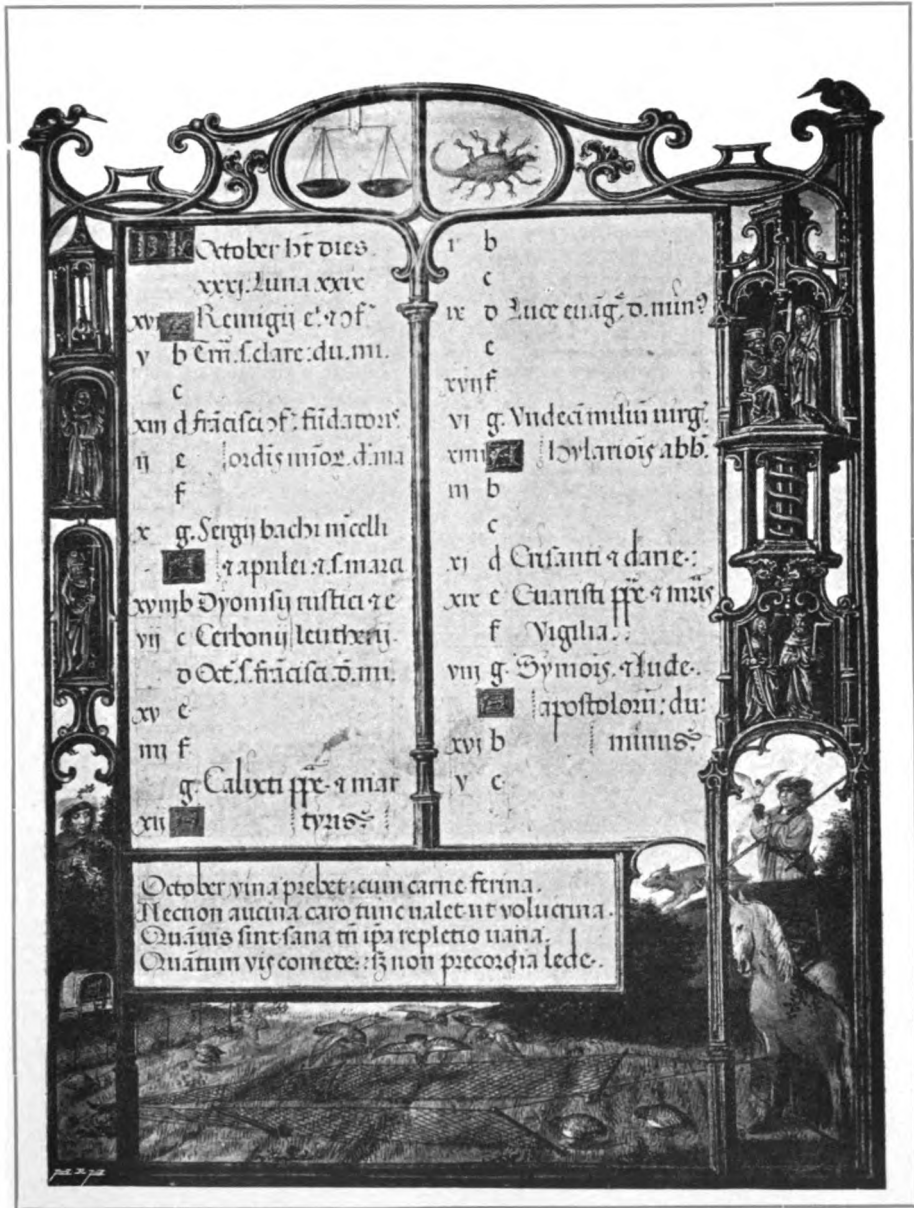 October ht dies
xxxj. Luna xxix
xvj A Remigij et ꝯf
v b Trn̄. s. clare: du. mi.
c
xiii d frācisci ꝯf. fūdatoris
ij e ordīs minoꝝ. d. ma
f
x g. Sergij bachi mcelli
A ⁊ apulei ⁊ s. marci
xviij b Dyonisij rustici ⁊ e
vij c Cerbonij leutherij.
d Oct. s. frācisci. d. mi.
xv e
iiij f
g. Calixti ppe. ⁊ mar
xij A tyris
b
c
ix d Luce euāg. d. min
e
xvij f
vi g. Vndeci miliū uirg.
xiiij A hylariois abb.
iij b
c
xj d Crisanti ⁊ darie.
xix e Euaristi ppe ⁊ mris
f Vigilia.
viij g. Symois. ⁊ Iude.
A apostoloru: du:
xvj b minus
v c.
October vina prebet: cum carne ferina.
Necnon aucina caro tunc ualet ut volucrina.
Quāuis sint sana tn̄ ip̄a repletio uana.
Quātum vis comede: sꝫ non precordia lede.